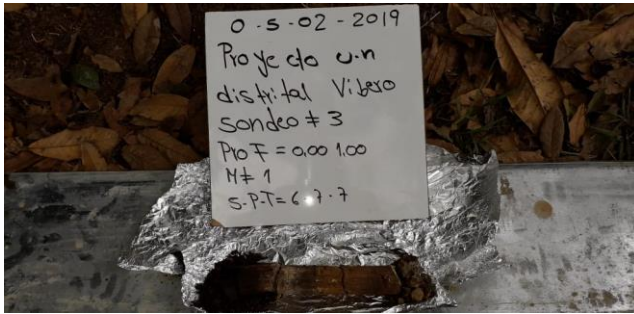 0.5-02-2019
Proyecto u.n
distrital Vibero
sondeo # 3
Prof = 0,00 1.00
M# 1
S.P.T= 6.7.7